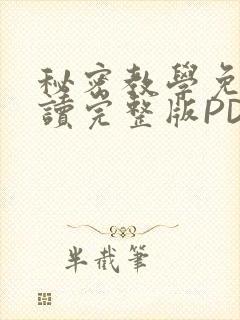 秘密教學免
讀完整版PD
半截筆